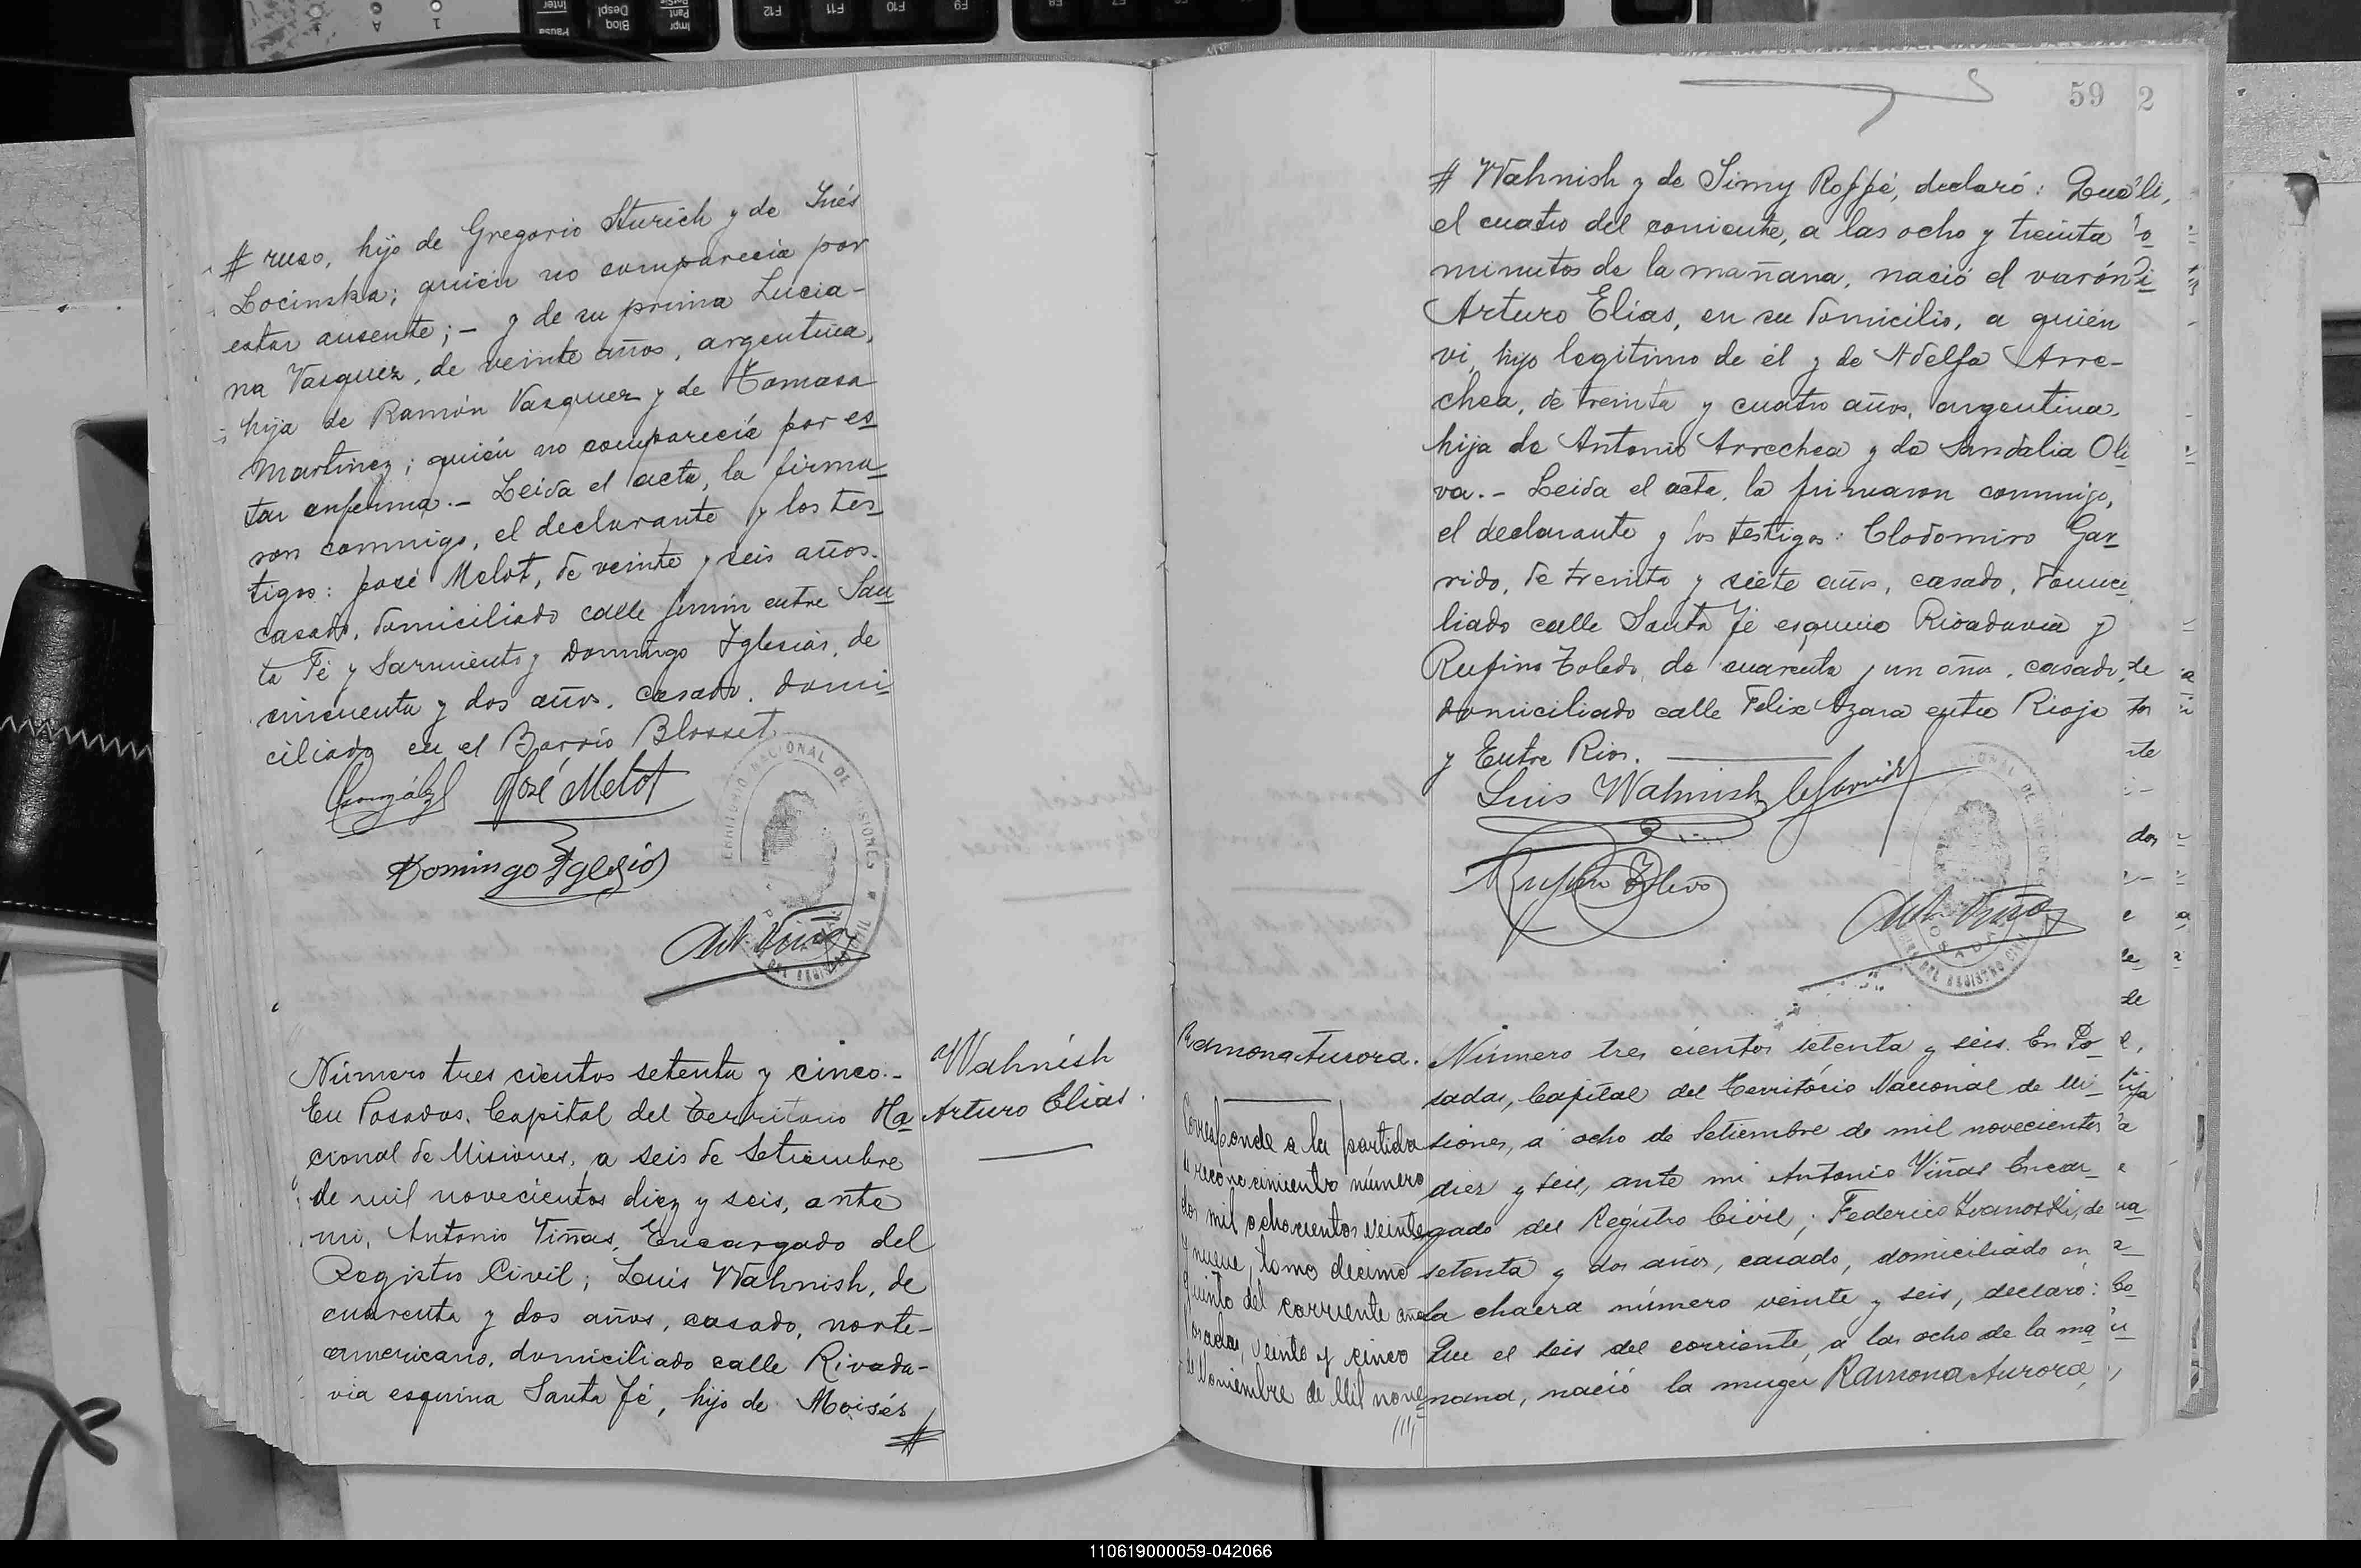 # ruso, hijo de Gregorio Sturich y de Inés
Locinska; quien no comparecía por
estar ausente; - y de su prima Lucia-
na Vasquez, de veinte años, argentina,
hija de Ramón Vasquez y de Tomasa
Martínez; quién no comparecía por es
tar enferma. - Leida el acta, la firma
ron conmigo, el declarante y los tes
tigos: José Melot, de veinte y seis años.
casado, domiciliado calle Junín entre San
ta Fé y Sarmiento y Domingo Yglesias, de
cincuenta y dos años, casado, domi
ciliado en el Barrio Blosset.
González José Melot
Domingo Yglesias
Ant. Viñas
Número tres cientos setenta y cinco.-
En Posadas, Capital del Territorio Na
cional de Misiones, a seis de Setiembre
de mil novecientos diez y seis, ante
mi, Antonio Viñas, Encargado del
Registro Civil; Luis Wahnish, de
cuarenta y dos años, casado, norte-
americano, domiciliado calle Rivada-
via esquina Santa Fé, hijo de Moisés
#
Wahnish
Arturo Elias.
59 2
# Wahnish y de Simy Roffé, declaró: Que
el cuatro del corriente, a las ocho y treinta
minutos de la mañana, nació el varón
Arturo Elías, en su domicilio, a quién
vi, hijo legitimo de él y de Adelfa Arre-
chea, de treinta y cuatro años, argentina,
hija de Antonio Arrechea y de Sandalia Oli
va. - Leida el acta, la firmaron conmigo,
el declarante y los testigos: Clodomiro Gar
rido, de treinta y siete años, casado, domici
liado calle Santa Fé esquina Rivadavia y
Rufino Toledo, de cuarenta y un años, casado,
domiciliado calle Felix Azara entre Rioja
y Entre Rios.
Luis Wahnish C. Garrido
Rufino Toledo
Ant. Viñas
Ramona Aurora.
Corresponde a la partida
de reconocimiento número
dos mil ochocientos veinte
y nueve, tomo decimo
quinto del corriente año
Posadas, veinte y cinco
de Noviembre de Mil nove
////
Número tres cientos setenta y seis. En Po
sadas, Capital del Territorio Nacional de Mi
siones, a ocho de Setiembre de mil novecientos
diez y seis, ante mi Antonio Viñas Encar
gado del Registro Civil; Federico Ivanoski, de
setenta y dos años, casado, domiciliado en
la chacra número veinte y seis, declaró:
Que el seis del corriente, a las ocho de la ma
ñana, nació la mujer Ramona Aurora,
110619000059-042066